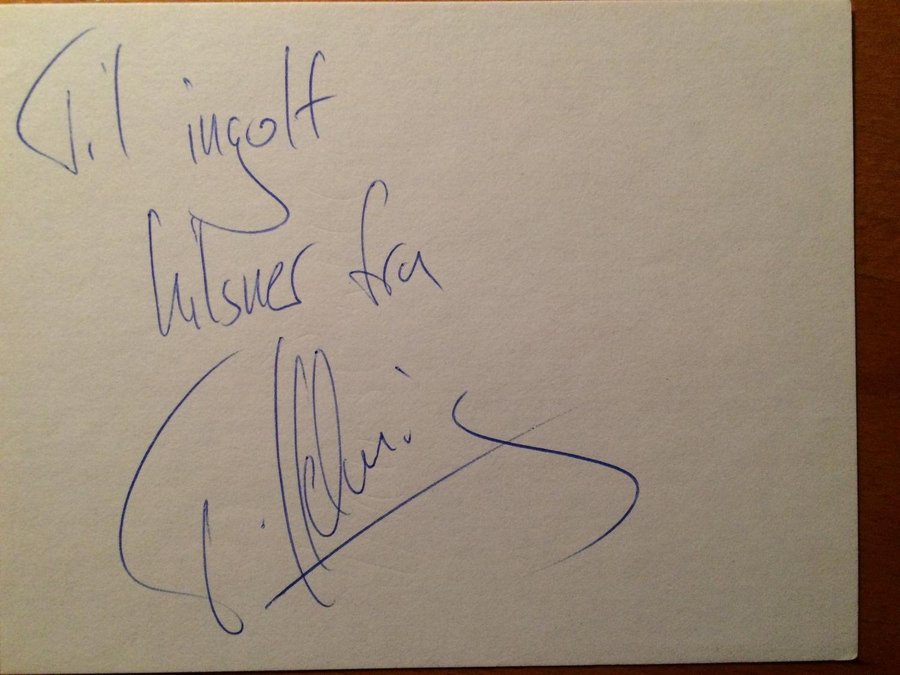 Til ingolf
hilsner fra